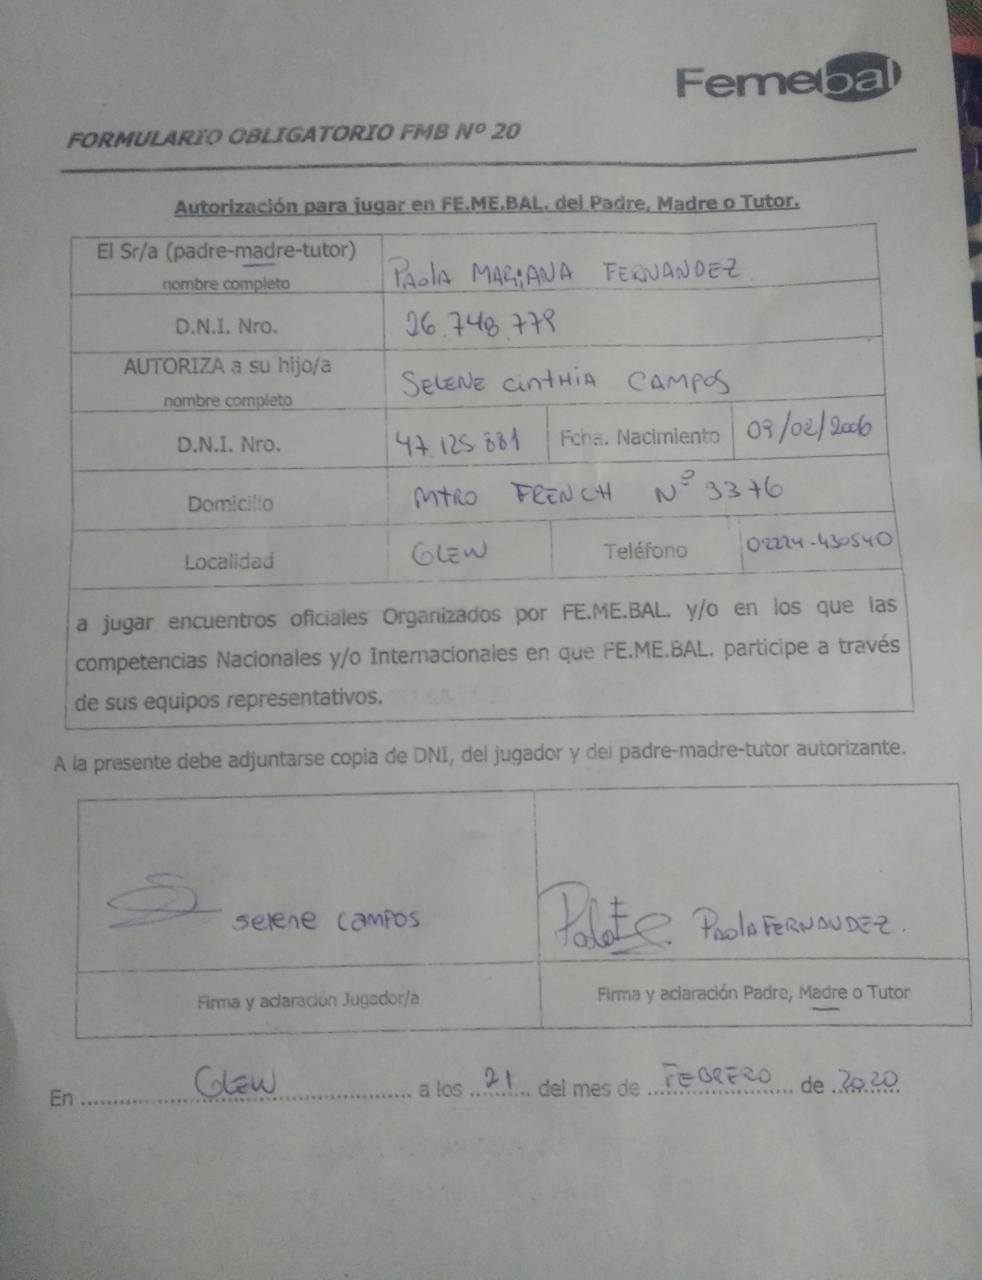 Femebal
FORMULARIO OBLIGATORIO FMB Nº 20
Autorización para jugar en FE.ME.BAL. del Padre, Madre o Tutor.
El Sr/a (padre-madre-tutor)
nombre completo
PAOLA MARIANA FERNANDEZ.
D.N.I. Nro.
26.748.778
AUTORIZA a su hijo/a
nombre completo
SELENE CINTHIA CAMPOS
D.N.I. Nro. 47.125.881 Fcha. Nacimiento 09/02/2006
Domicilio MTRO FRENCH Nº 3376
Localidad GLEW Teléfono 02224-430540
a jugar encuentros oficiales Organizados por FE.ME.BAL. y/o en los que las
competencias Nacionales y/o Internacionales en que FE.ME.BAL. participe a través
de sus equipos representativos.
A la presente debe adjuntarse copia de DNI, del jugador y del padre-madre-tutor autorizante.
selene campos
PAOLA FERNANDEZ.
Firma y aclaración Jugador/a
Firma y aclaración Padre, Madre o Tutor
En GLEW a los 21 del mes de FEBRERO de 2020